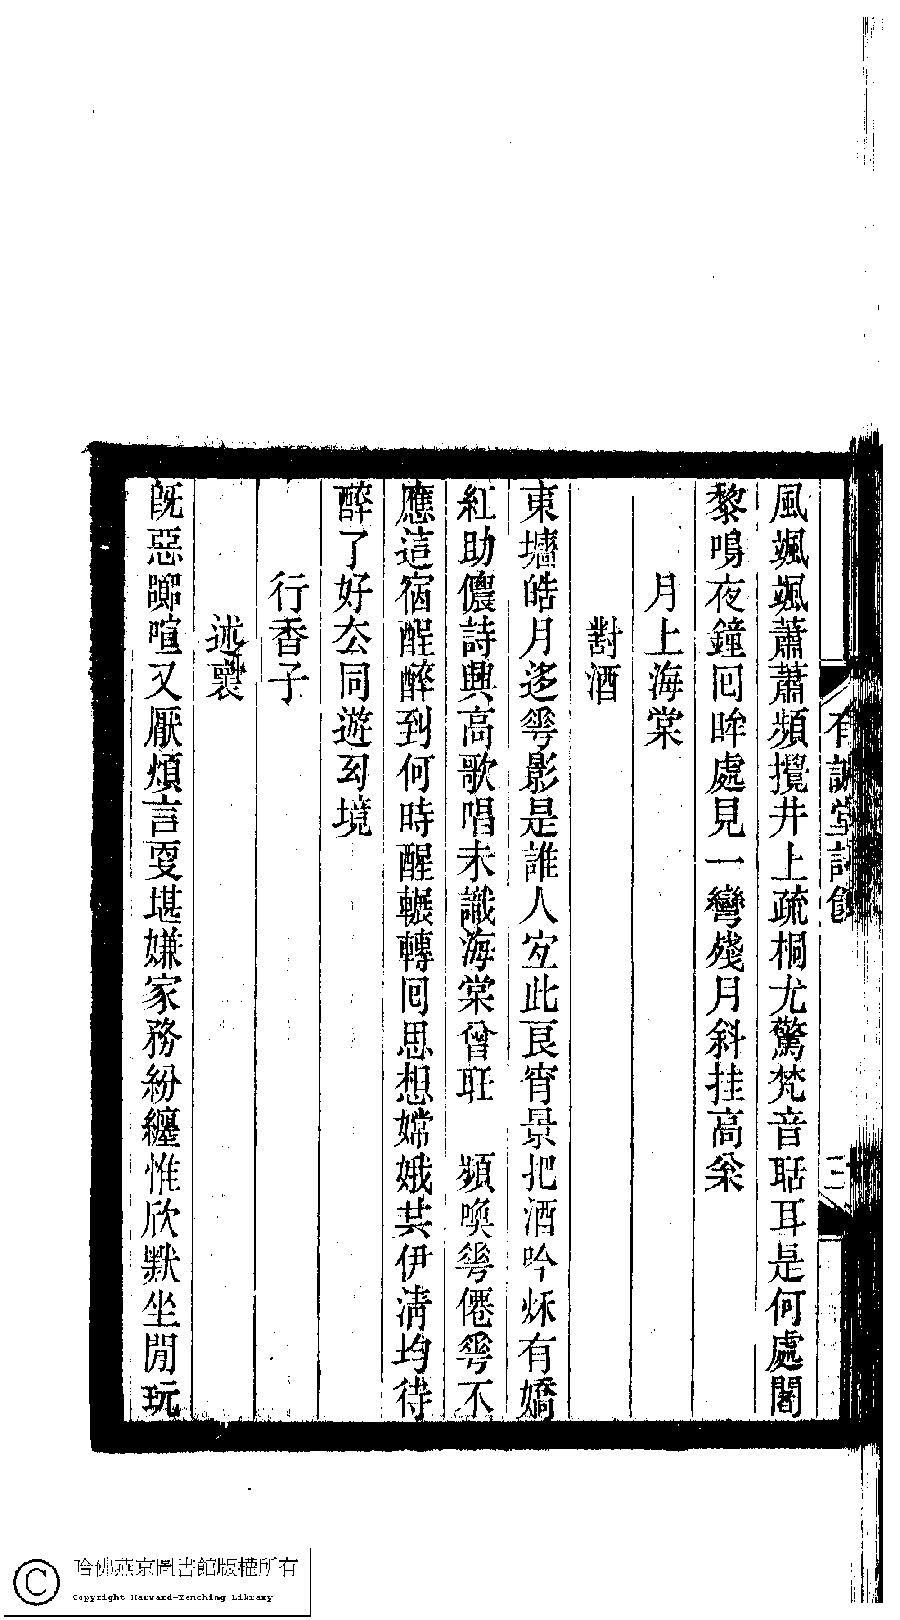 風颯颯蕭蕭頻攪井上疏桐尤驚梵音聒耳是何處閣
黎鳴夜鐘回眸處見一彎殘月斜挂高松
月上海棠
對酒
東墻皓月迻䔢影是誰人宐此良宵景把酒吟秌有嬌
紅助儂詩興高歌唱未識海棠曾聑　頻喚䔢僊䔢不
應這宿酲醉到何時醒輾轉囘思想嫦娥共伊淸均待
醉了好厺同遊幻境
行香子
述褱
旣惡躑喧又厭煩言叓堪嫌家務紛纏惟欣默坐閒玩
有誠堂詩餘
三
哈佛燕京圖書館版權所有
Copyright Harvard-Yenching Library